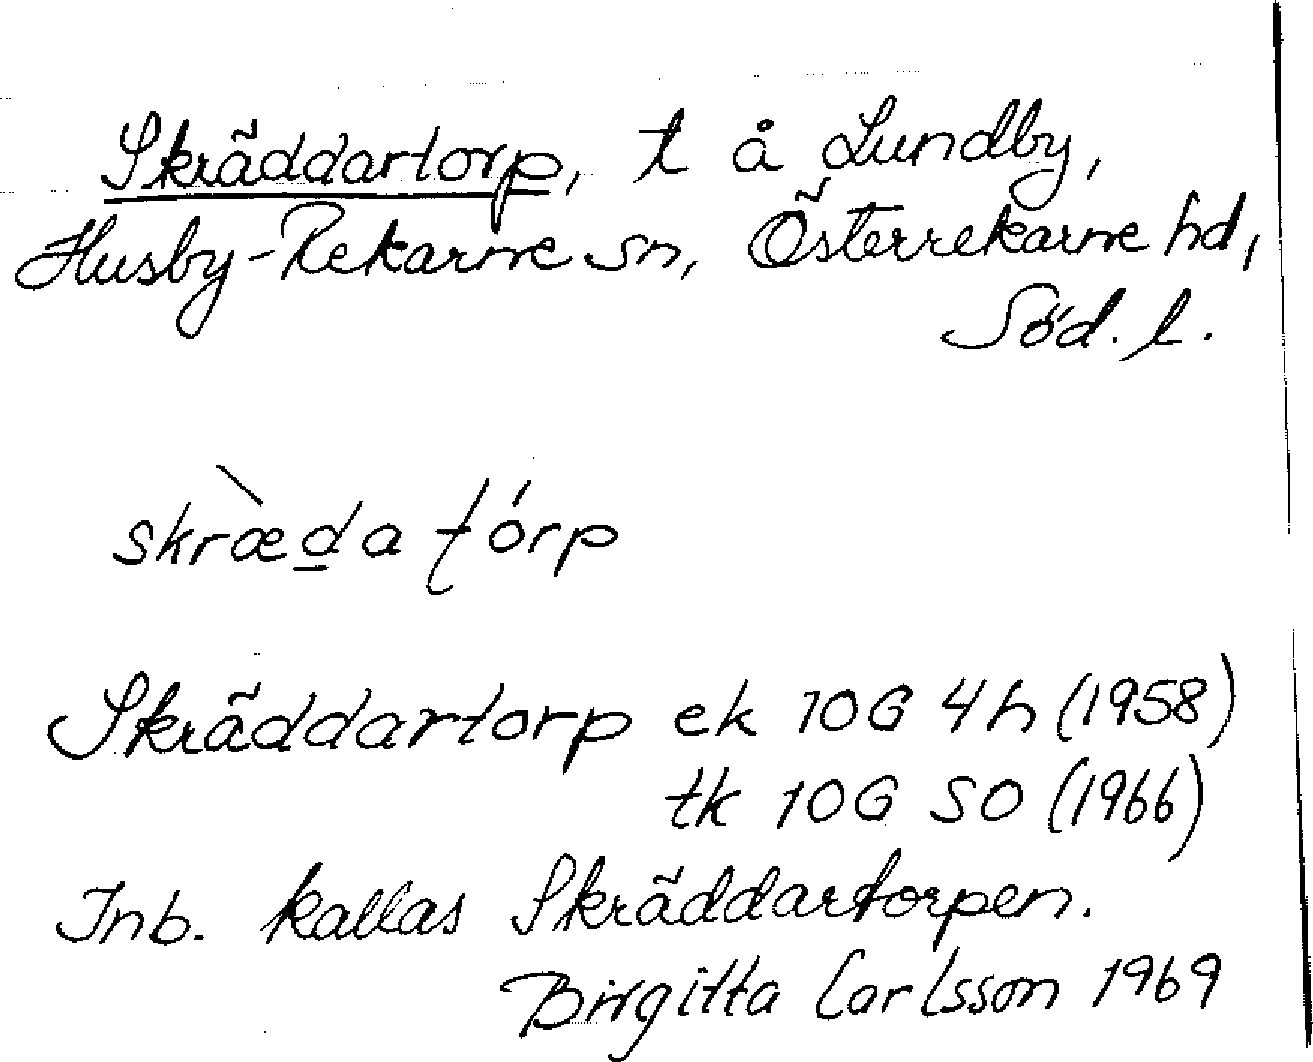 Skräddartorp, t å Lundby,
Husby-Rekarne sn, Österrekarne hd,
Söd. l.
skræ̀d̲a tórp
Skräddartorp ek 10G 4h (1958)
tk 10G SO (1966)
Inb. kallas Skräddartorpen.
Birgitta Carlsson 1969